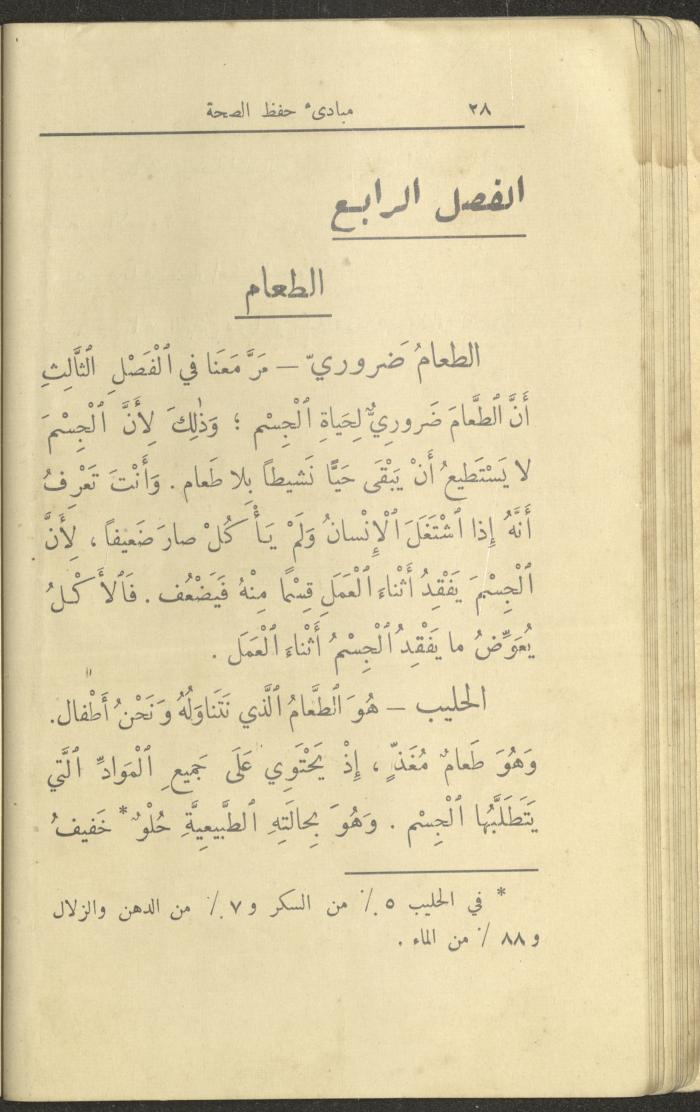 ٢٨ مبادىء حفظ الصحة
الفصل الرابع
الطعام
الطعامُ ضَروريّ — مَرَّ مَعَنا في ٱلْفَصْلِ ٱلثَّالِثِ
أَنَّ ٱلطَّعَامَ ضَرورِيٌّ لِحَياةِ ٱلْجِسْم ؛ وَذٰلِكَ لِأَنَّ ٱلْجِسْمَ
لا يَسْتَطيعُ أَنْ يَبْقَى حَيًّا نَشيطاً بِلا طَعام . وَأَنْتَ تَعْرِفُ
أَنَّهُ إِذا ٱشْتَغَلَ ٱلْإِنْسانُ وَلَمْ يَأْكُلْ صارَ ضَعيفاً ، لِأَنَّ
ٱلْجِسْمَ يَفْقِدُ أَثْناءَ ٱلْعَمَلِ قِسْمًا مِنْهُ فَيَضْعُف . فَٱلأَكْلُ
يُعَوِّضُ ما يَفْقِدُ ٱلْجِسْمُ أَثْناءَ ٱلْعَمَل .
الحليب — هُوَ ٱلطَّعامُ ٱلَّذي نَتَناوَلُهُ وَنَحْنُ أَطْفال.
وَهُوَ طَعامٌ مُغَذٍّ ، إِذْ يَحْتَوِي عَلَى جَميعِ ٱلْمَوادِّ ٱلَّتي
يَتَطَلَّبُها ٱلْجِسْم . وَهُوَ بِحالَتِهِ ٱلطَّبيعيَّةِ حُلْوٌ* خَفيفُ
* في الحليب ٥ ٪ من السكر و ٧ ٪ من الدهن والزلال
و ٨٨ ٪ من الماء .